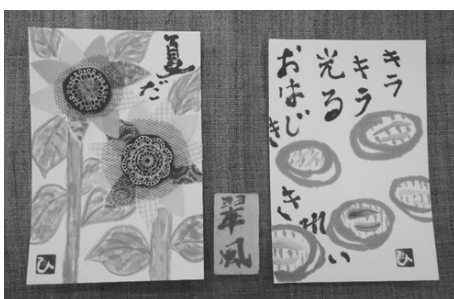 夏だ
ひ
翠風
キラ
キラ
光る
おはじき
きれい
ひ